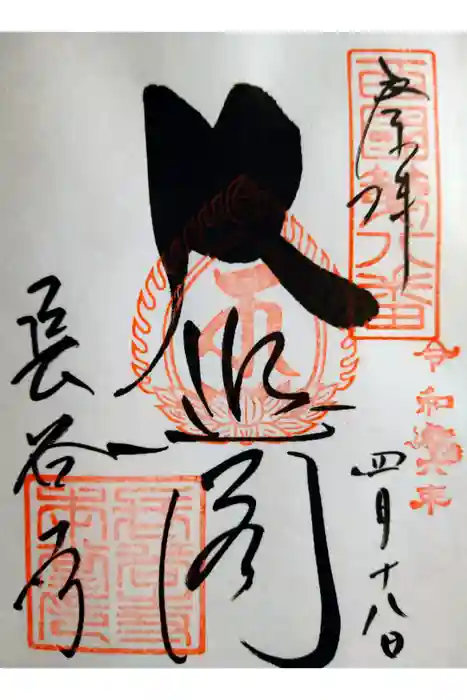 奉拝
西國第八番
令和六年
四月十八日
大悲閣
長谷寺